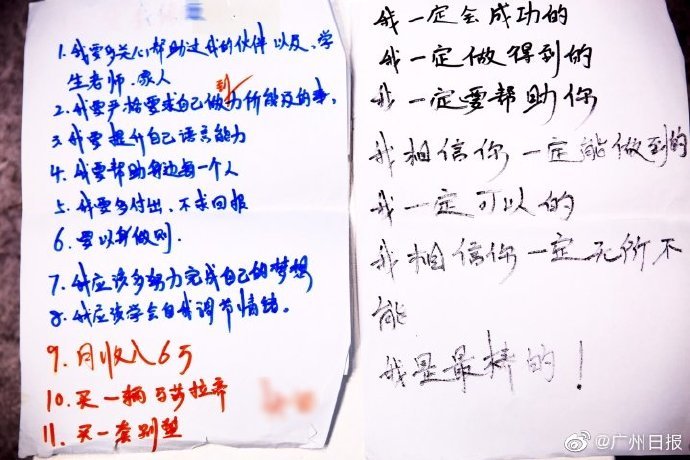 1. 我要多关心帮助过我的伙伴以及、学
生老师、家人
2. 我要严格要求自己做到力所能及的事、
3. 我要提升自己语言能力
4. 我要帮助身边每一个人
5. 我要多付出、不求回报
6. 要以身做则.
7. 我应该多努力完成自己的梦想
8. 我应该学会自我调节情绪。
9. 月收入6万
10. 买一辆玛莎拉蒂
11. 买一套别墅
我一定会成功的
我一定做得到的
我一定要帮助你
我相信你一定能做到的
我一定可以的
我相信你一定无所不
能
我是最棒的!
@广州日报